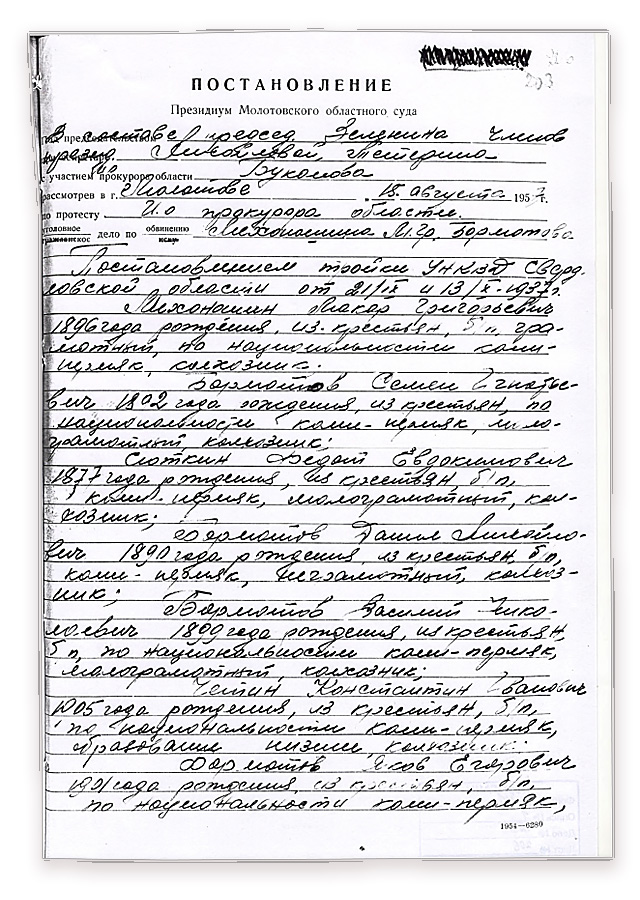 203
ПОСТАНОВЛЕНИЕ
Президиум Молотовского областного суда
В составе председ. Зеленина членов
Яковлевой, Тетерина
с участием прокурора области Букалова
рассмотрев в г. Молотове 18 августа 1957 г.
по протесту И.о прокурора области.
дело по обвинению Механошина М.Гр. Бормотова
Постановлением тройки УНКВД Сверд-
ловской области от 21/IX и 13/X-1937г.
Механошин Макар Григорьевич
1896 года рождения, из крестьян, б/п, гра-
мотный, по национальности коми-
пермяк, колхозник.
Бормотов Семен Игнатье-
вич 1892 года рождения, из крестьян, по
национальности коми-пермяк, мало-
грамотный, колхозник;
Сюткин Федот Евдокимович
1877 года рождения, из крестьян, б/п,
коми-пермяк, малограмотный, кол-
хозник;
Бормотов Данил Михайло-
вич 1890 года рождения, из крестьян, б/п,
коми-пермяк, неграмотный, колхоз-
ник;
Бормотов Василий Нико-
лаевич 1899 года рождения, из крестьян,
б/п, по национальности коми-пермяк,
малограмотный, колхозник;
Четин Константин Иванович
1905 года рождения, из крестьян, б/п,
по национальности коми-пермяк,
образование низшее, колхозник:
Бормотов Яков Егорович
1901 года рождения, из крестьян, б/п,
по национальности коми-пермяк,
1954—6280